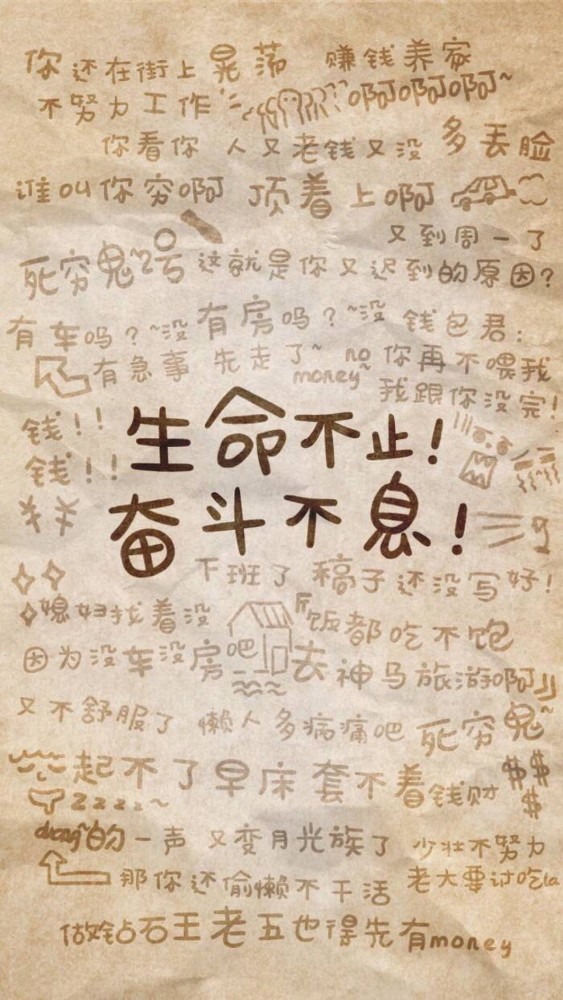 你还在街上晃荡 赚钱养家
不努力工作 啊啊啊啊~
你看你 人又老钱又没 多丢脸
谁叫你穷啊 顶着上啊
又到周一了
死穷鬼2号 这就是你又迟到的原因?
有车吗?~没 有房吗?~没 钱包君:
有急事 先走了~ no money~ 你再不喂我
我跟你没完!
钱!!
钱!!
生命不止!
奋斗不息!
下班了 稿子还没写好!
媳妇找着没 饭都吃不饱
因为没车没房吧 去神马旅游啊!!
又不舒服了 懒人多病痛吧 死穷鬼~
起不了早床 套不着钱财 $$$
zzzz~
duang的一声 又变月光族了 少壮不努力
那你还偷懒不干活 老大要讨吃la
做钻石王老五也得先有money